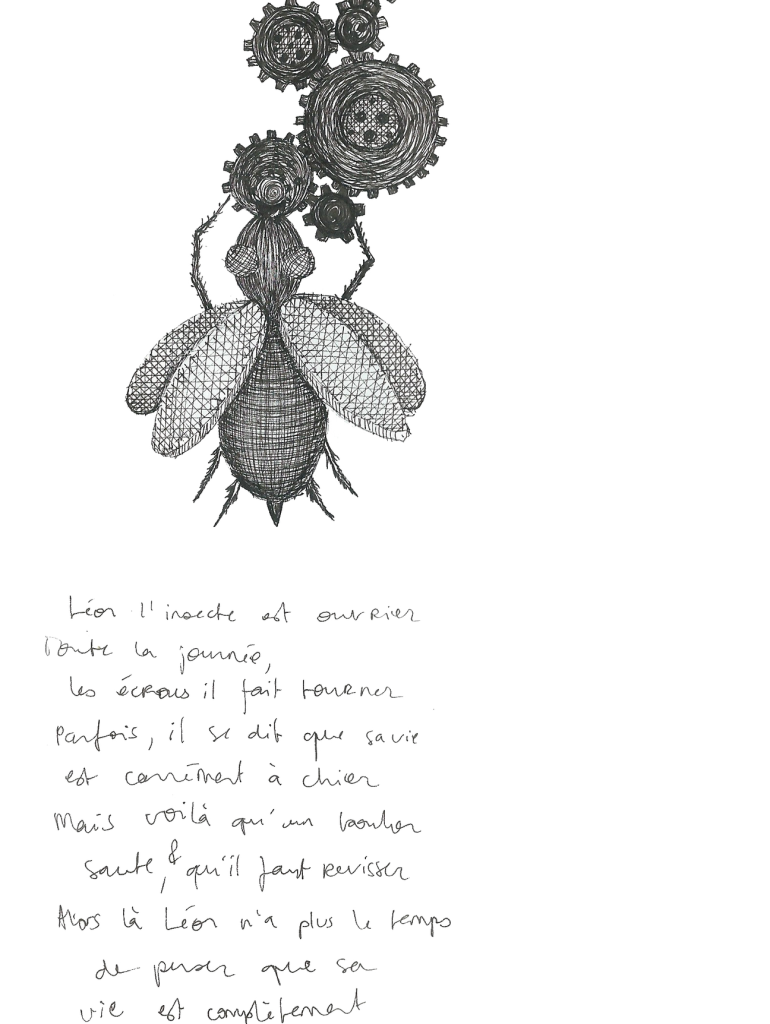 Léon l'insecte est ouvrier
Toute la journée,
les écrous il fait tourner
Parfois, il se dit que sa vie
est carrément à chier
Mais voilà qu'un boulon
saute, & qu'il faut revisser
Alors là Léon n'a plus le temps
de penser que sa
vie est complètement